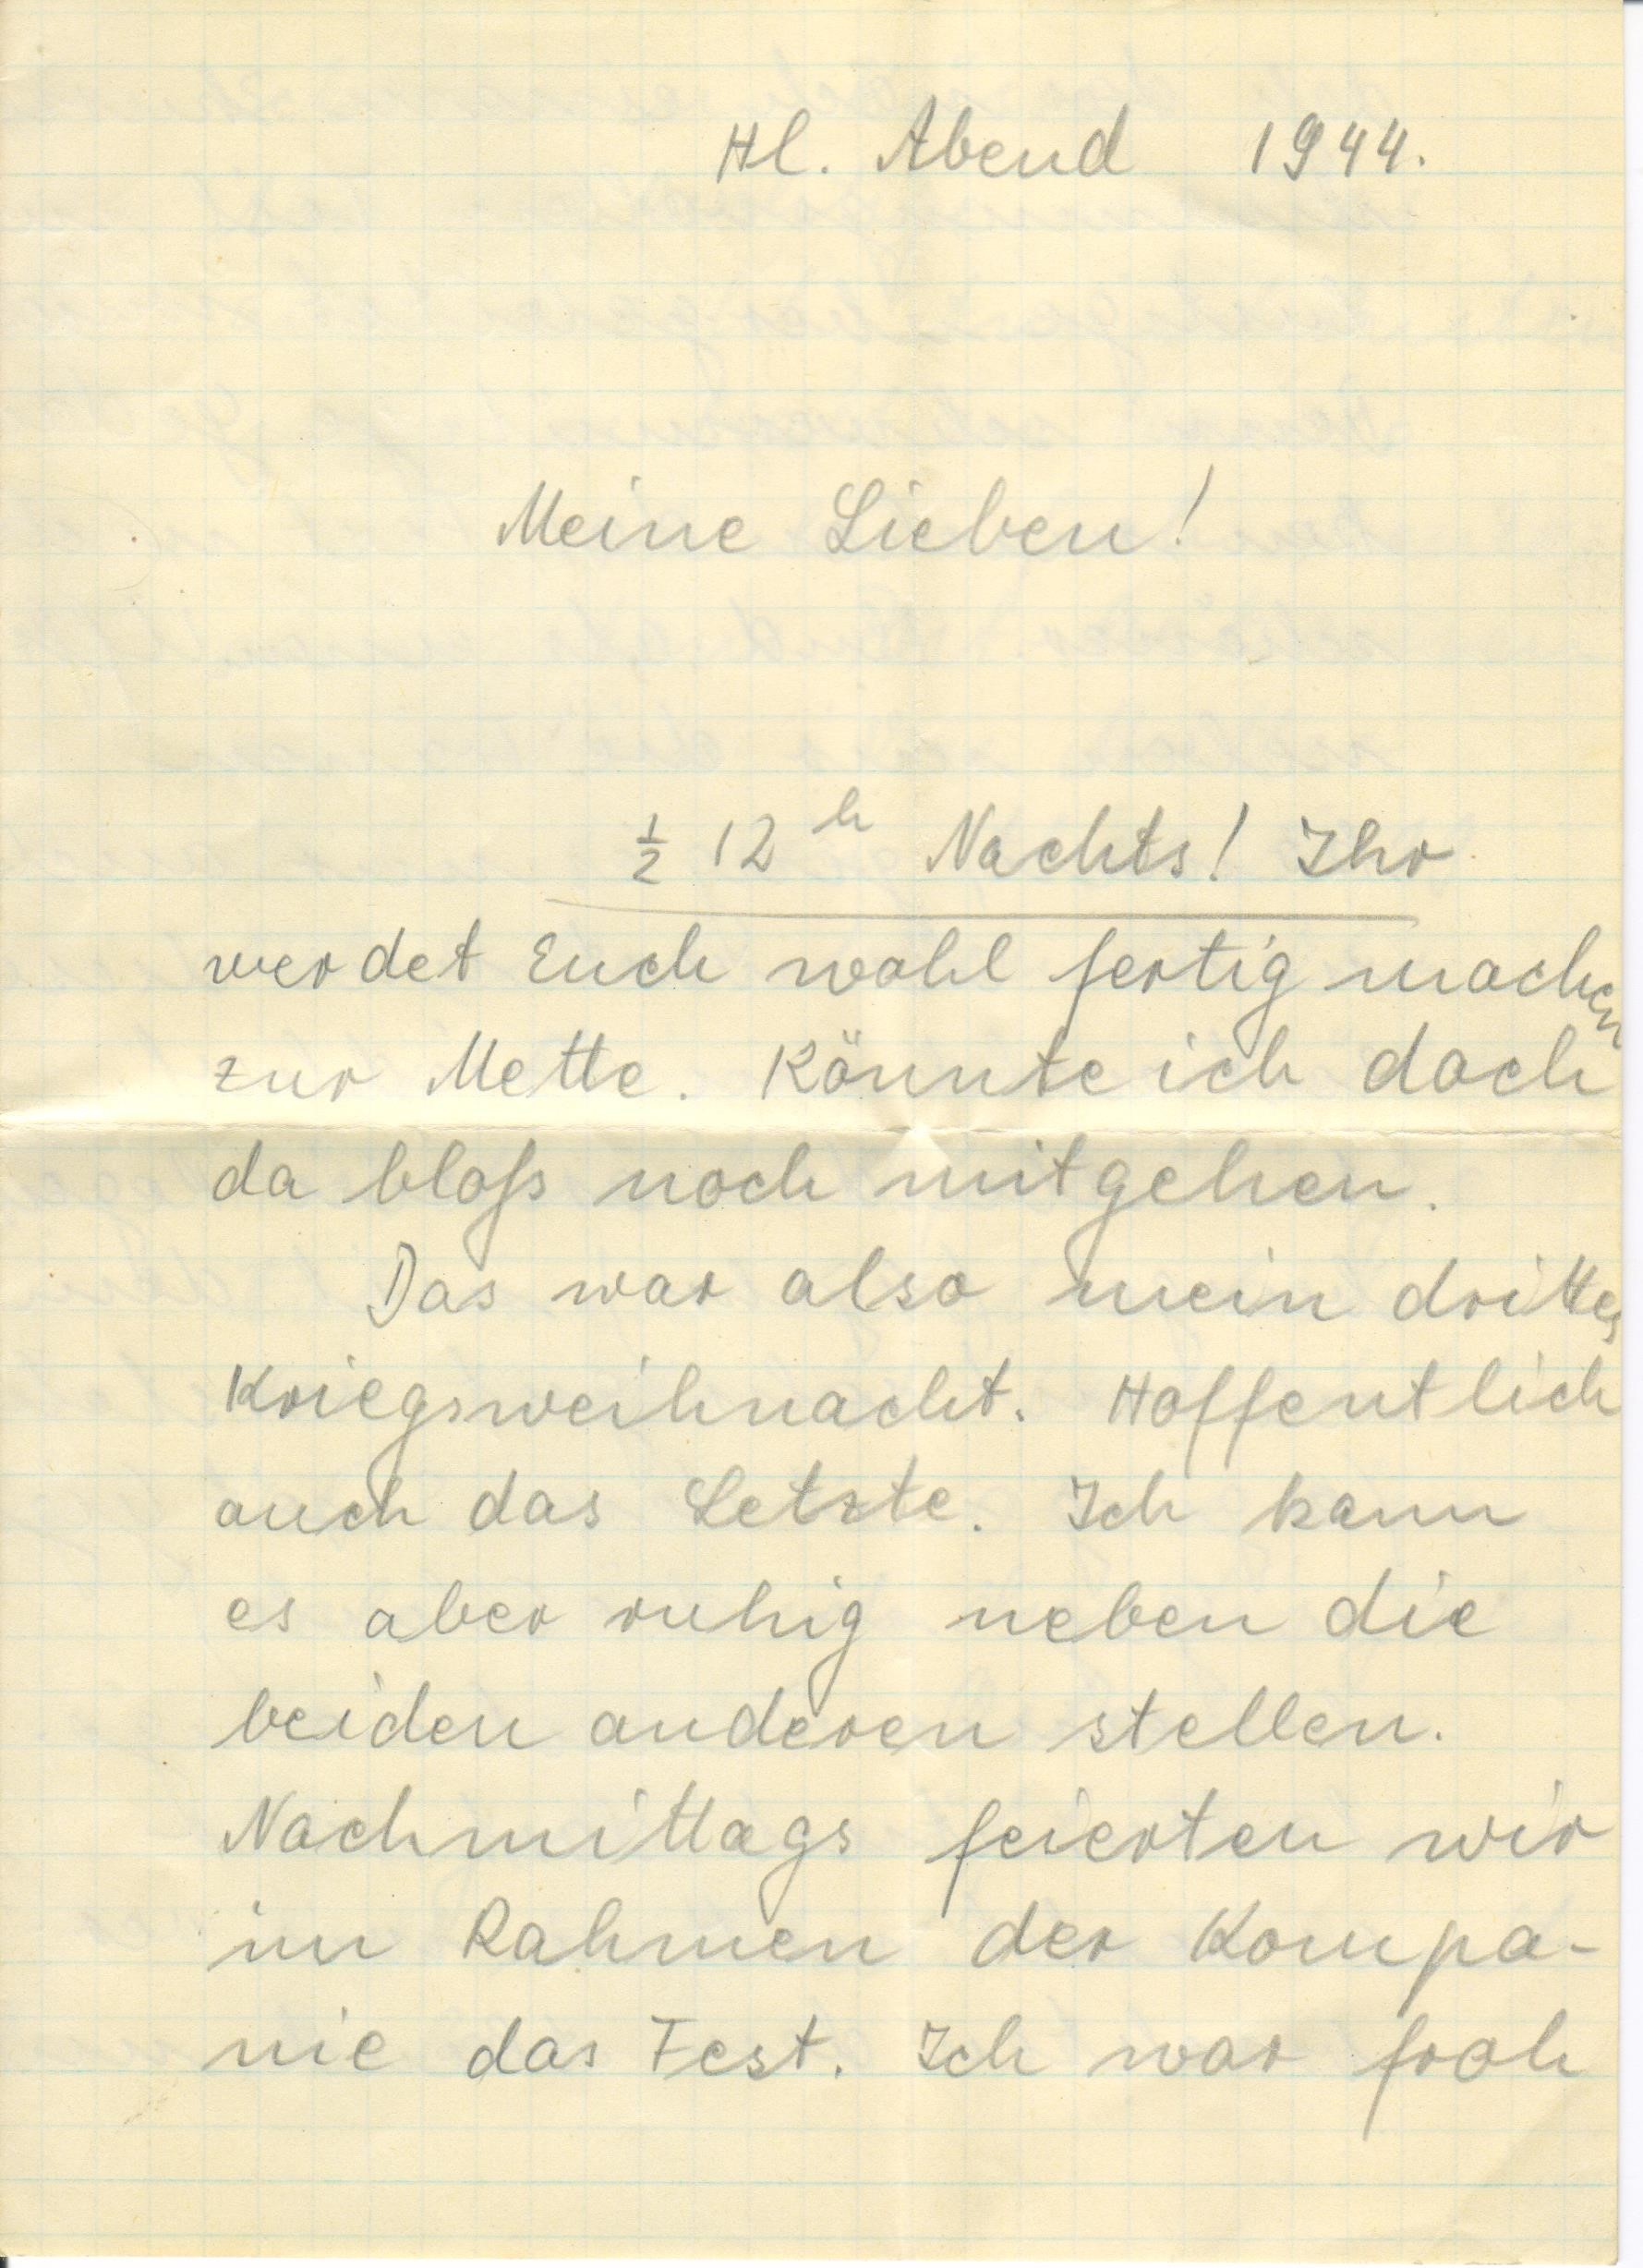 Hl. Abend 1944.
Meine Lieben!
½ 12 h Nachts! Ihr
werdet Euch wohl fertig machen
zur Mette. Könnte ich doch
da bloß noch mitgehen.
Das war also mein drittes
Kriegsweihnacht. Hoffentlich
auch das Letzte. Ich kann
es aber ruhig neben die
beiden anderen stellen.
Nachmittags feierten wir
im Rahmen der Kompa-
nie das Fest. Ich war froh